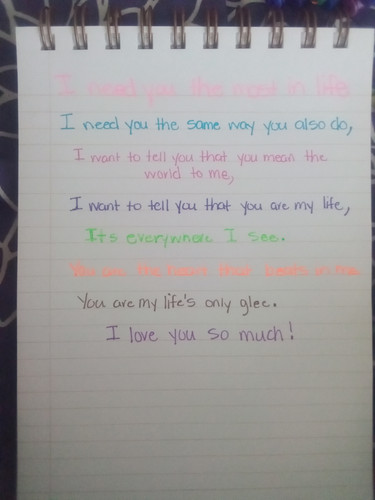 I need you the most in life
I need you the same way you also do,
I want to tell you that you mean the
world to me,
I want to tell you that you are my life,
It's everywhere I see.
You are the heart that beats in me
You are my life's only glee.
I love you so much!